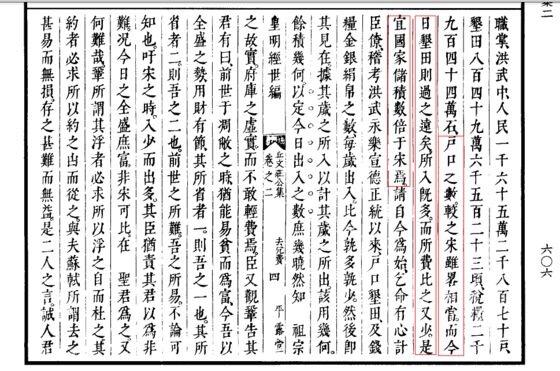 集二
六〇六
職掌洪武中人民一千六十五萬二千八百七十戶
墾田八百四十九萬六千五百二十三頃稅糧二千
九百四十四萬石戶口之數較之宋雖畧相當而今
日墾田則過之遠矣所入旣多而所費比之又少是
宜國家儲積數倍于宋焉請自今爲始乞命有心計
臣僚稽考洪武永樂宣德正統以來戶口墾田及錢
糧金銀絹帛之數每歲出入比今孰多孰少然後卽
其見在據其歲之所入以計其歲之所出該用幾何
餘積幾何以定今日出入之數庶幾曉然知 祖宗
皇明經世編 丘文莊公集 卷之二 去冗費 四 平露堂
之故實府庫之虛實而不敢輕費焉臣又觀鞏告其
君有曰前世于凋敝之時猶能易貧而爲富今吾以
全盛之勢用財有節其所省者一則吾之一也其所
省者二則吾之二也前世之所難吾之所易不論可
知也吁宋之時入少而出多其臣猶責其君以爲非
難况今日之全盛庶富非宋可比在 聖君爲之又
何難哉鞏所謂其浮者必求所以浮之自而杜之其
約者必求所以約之由而從之與夫蘇軾所謂去之
甚易而無損存之甚難而無益是二人之言誠人君